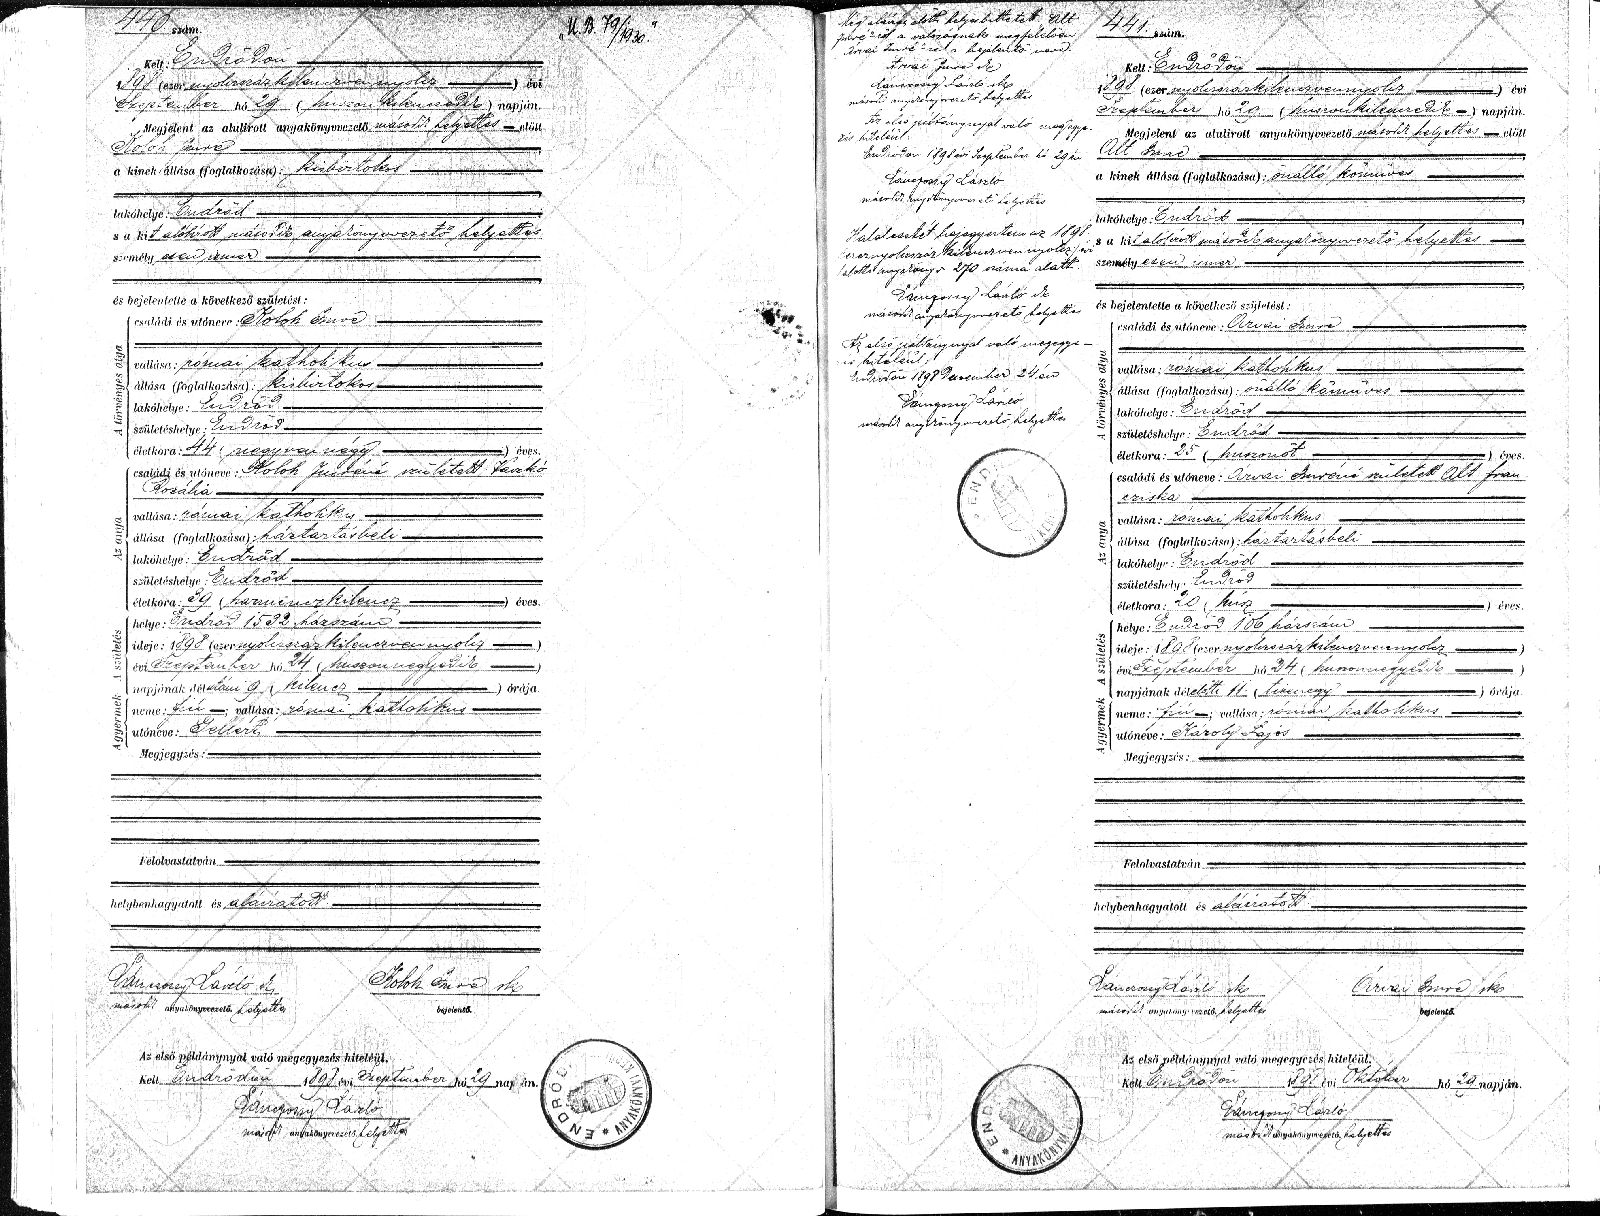 440 szám.
"U. B. 79/1930."
Kelt Endrődön
1898 (ezernyolcszázkilenczvennyolcz) évi
Szeptember hó 29 (huszonkilenczedik) napján.
Megjelent az alulirott anyakönyvvezető másodh. helyettes előtt
Holoh Imre
a kinek állása (foglalkozása): kisbirtokos
lakóhelye: Endrőd
s a kit alólirott másodh. anyakönyvvezető helyettes
személyesen ismer
és bejelentette a következő születést:
A törvényes atya
családi és utóneve: Holoh Imre
vallása: római katholikus
állása (foglalkozása): kisbirtokos
lakóhelye: Endrőd
születéshelye: Endrőd
életkora: 44 (negyvennégy) éves.
Az anya
családi és utóneve: Holoh Imréné született
Rozália
vallása: római katholikus
állása (foglalkozása): háztartásbeli
lakóhelye: Endrőd
születéshelye: Endrőd
életkora: 39 (harminczkilencz) éves.
A születés
helye: Endrőd 1532 házszám
ideje: 1898 (ezernyolcszázkilenczvennyolcz)
évi Szeptember hó 24 (huszonnegyedik)
napjának délutáni 9 (kilencz) órája.
A gyermek
neme: fiú; vallása: római katholikus
utóneve: Gellért
Megjegyzés:
Felolvastatván
helybenhagyatott és aláiratott.
Lánczossy László sk Holoh Imre sk
másodh. anyakönyvvezető helyettes bejelentő.
Az első példánynyal való megegyezés hiteléül.
Kelt Endrődön 1898 évi Szeptember hó 29 napján.
Lánczossy László
másodh. anyakönyvvezető helyettes
ENDRŐD ANYAKÖNYVI
Még aláirás előtt helyesbittetett "Alt
Imré"-ről a valóságnak megfelelően
"Árvai Imré"-re a bejelentő neve.
Árvai Imre sk
Lánczossy László sk
másodh. anyakönyvvezető helyettes
Az első példánynyal való megegye-
zés hiteléül.
Endrődön 1898 évi Szeptember hó 29 én
Lánczossy László
másodh. anyakönyvvezető helyettes
Halálesetét bejegyeztem az 1898
ezernyolcszázkilenczvennyolcz évi
halotti anyakönyv 270 száma alatt.
Lánczossy László sk
másodh. anyakönyvvezető helyettes
Az első példánynyal való megegye-
zés hiteléül.
Endrődön 1898 Deczember 24 én
Lánczossy László
másodh. anyakönyvvezető helyettes
441. szám.
Kelt: Endrődön
1898 (ezernyolcszázkilenczvennyolcz) évi
Szeptember hó 29 (huszonkilenczedik) napján.
Megjelent az alulirott anyakönyvvezető másodh. helyettes előtt
Alt Imre
a kinek állása (foglalkozása): önálló kőmüves
lakóhelye: Endrőd
s a kit alólirott másodh. anyakönyvvezető helyettes
személyesen ismer
és bejelentette a következő születést:
A törvényes atya
családi és utóneve: Árvai Imre
vallása: római katholikus
állása (foglalkozása): önálló kőmüves
lakóhelye: Endrőd
születéshelye: Endrőd
életkora: 25 (huszonöt) éves.
Az anya
családi és utóneve: Árvai Imréné született Alt Fran
cziska
vallása: római katholikus
állása (foglalkozása): háztartásbeli
lakóhelye: Endrőd
születéshely: Endrőd
életkora: 20 (húsz) éves.
A születés
helye: Endrőd 106 házszám
ideje: 1898 (ezernyolcszázkilenczvennyolcz)
évi Szeptember hó 24 (huszonnegyedik)
napjának délelőtti 11 (tizenegy) órája.
A gyermek
neme: fiú; vallása: római katholikus
utóneve: Károly Lajos
Megjegyzés:
Felolvastatván
helybenhagyatott és aláiratott.
Lánczossy László sk Árvai Imre sk
másodh. anyakönyvvezető helyettes bejelentő.
Az első példánynyal való megegyezés hiteléül.
Kelt Endrődön 1898 évi Október hó 29 napján.
Lánczossy László
másodh. anyakönyvvezető helyettes
ENDRŐD ANYAKÖNYVI